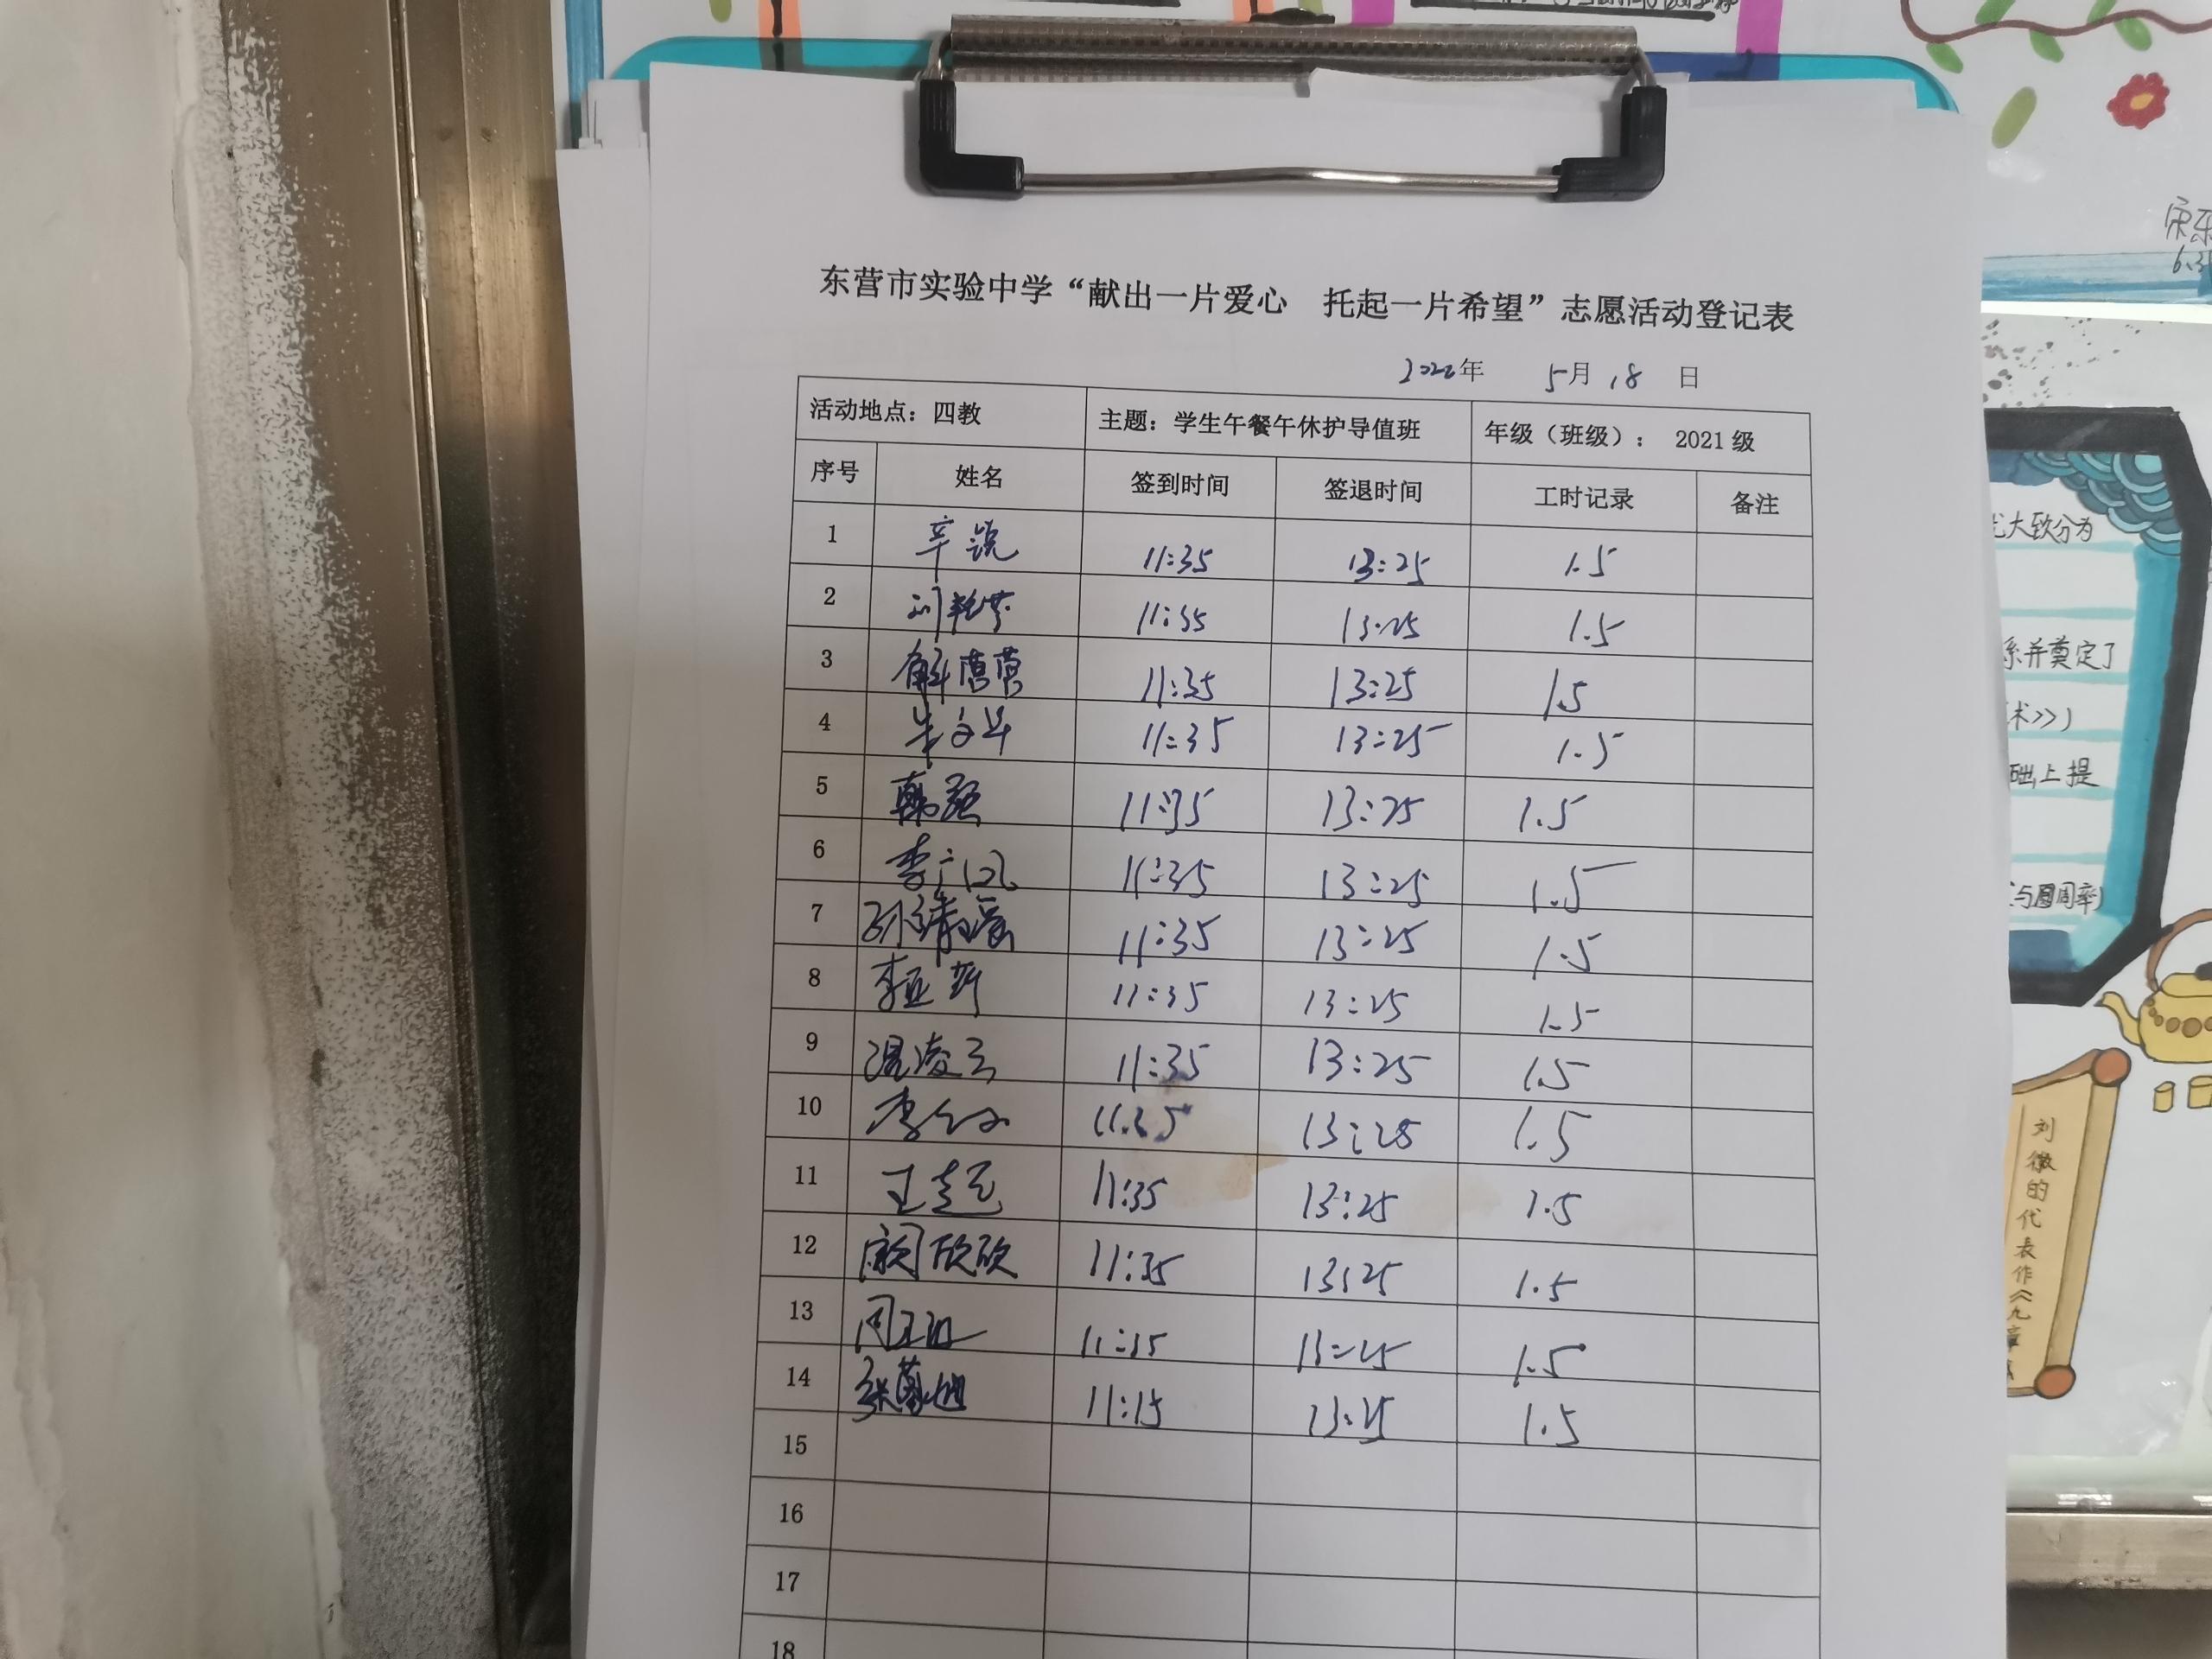 东营市实验中学“献出一片爱心 托起一片希望”志愿活动登记表
2022年 5月18日
活动地点：四教 主题：学生午餐午休护导值班 年级（班级）： 2021级
序号 姓名 签到时间 签退时间 工时记录 备注
1 辛锐 11:35 13:25 1.5
2 刘艳芳 11:35 13:25 1.5
3 解营营 11:35 13:25 1.5
4 朱文华 11:35 13:25 1.5
5 韩强 11:35 13:25 1.5
6 李 11:35 13:25 1.5
7 孙靖瑶 11:35 13:25 1.5
8 李亚新 11:35 13:25 1.5
9 温凌云 11:35 13:25 1.5
10 李 11:35 13:25 1.5
11 王 11:35 13:25 1.5
12 欣欣 11:35 13:25 1.5
13 周玉 11:35 13:25 1.5
14 张 11:15 13:25 1.5
15
16
17
18
大致分为
系并奠定了
术>>)
础上提
与圆周率)
刘徽的代表作《九章